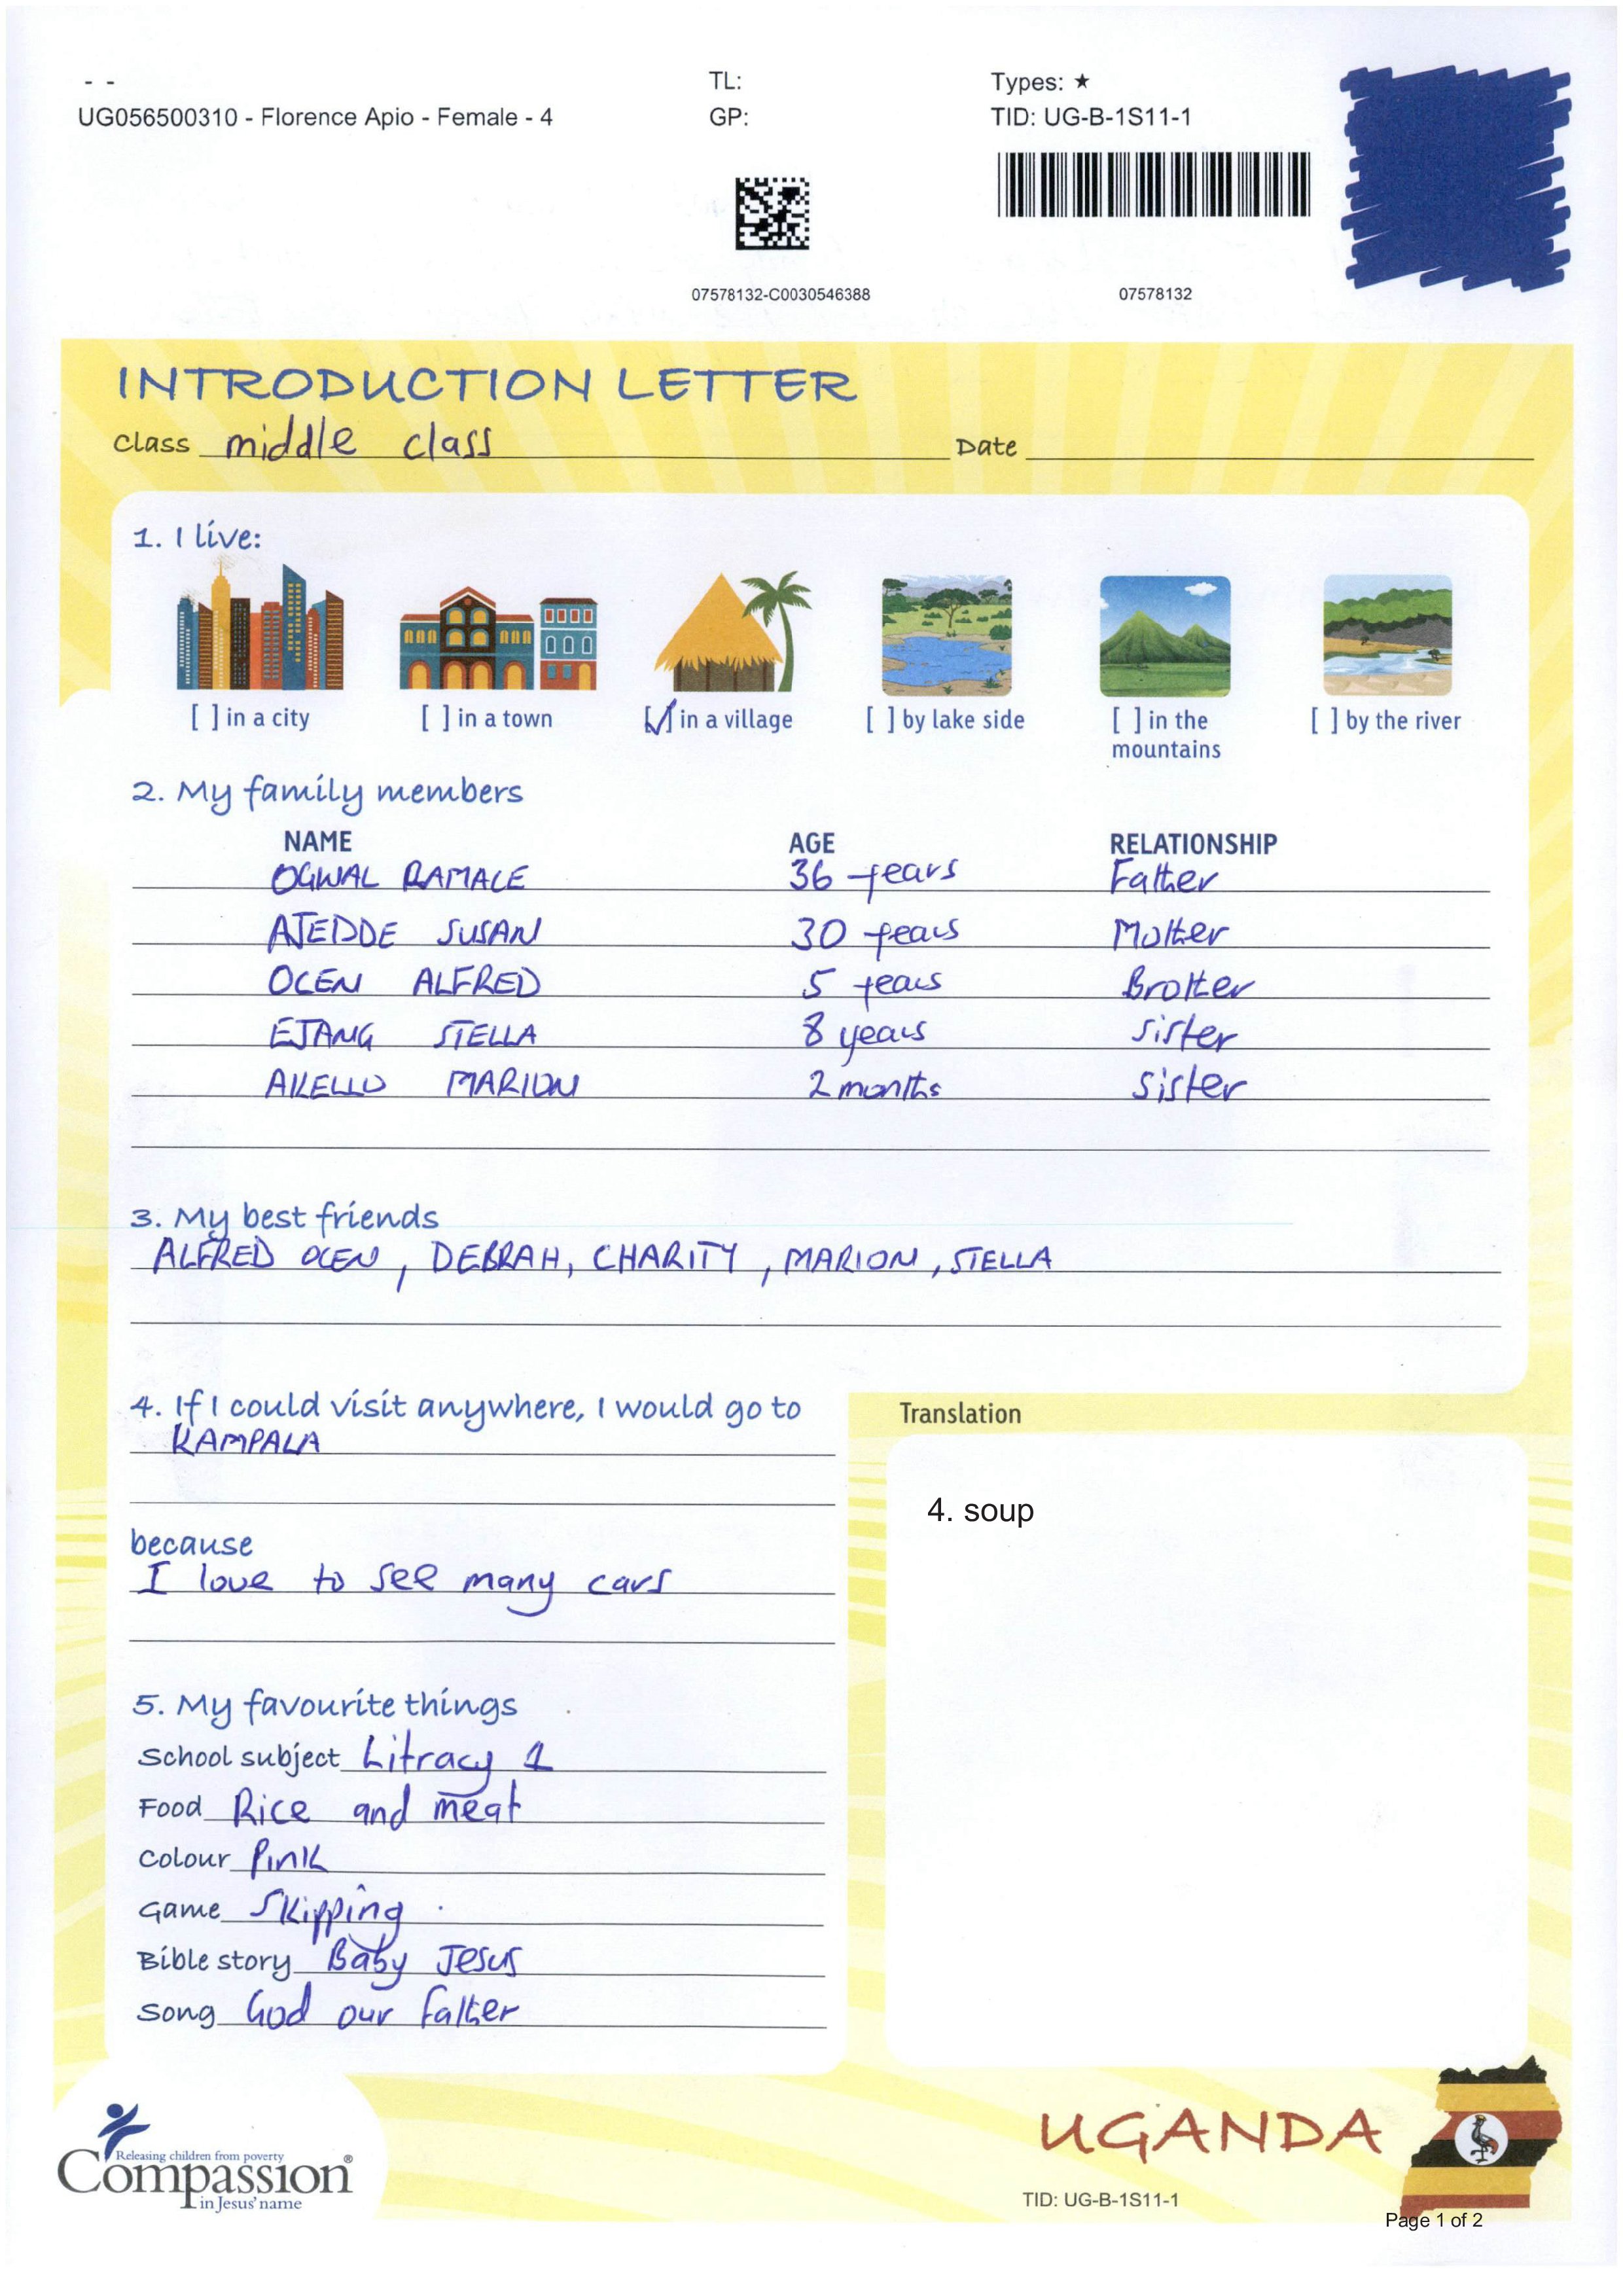 - -
UG056500310 - Florence Apio - Female - 4
TL:
GP:
Types: ★
TID: UG-B-1S11-1
07578132-C0030546388
07578132
INTRODUCTION LETTER
Class middle class Date
1. I live:
[ ] in a city [ ] in a town [✓] in a village [ ] by lake side [ ] in the mountains [ ] by the river
2. My family members
NAME AGE RELATIONSHIP
OGWAL RAMALE 36 years Father
AJEDDE SUSAN 30 years Mother
OCEN ALFRED 5 years Brother
EJANG STELLA 8 years sister
AKELLO MARION 2 months sister
3. My best friends
ALFRED OCEN, DEBRAH, CHARITY, MARION, STELLA
4. If I could visit anywhere, I would go to
KAMPALA
because
I love to see many cars
Translation
4. soup
5. My favourite things
School subject Litracy 1
Food Rice and meat
Colour Pink
Game Skipping
Bible story Baby Jesus
Song God our father
Releasing children from poverty
Compassion®
in Jesus' name
UGANDA
TID: UG-B-1S11-1
Page 1 of 2